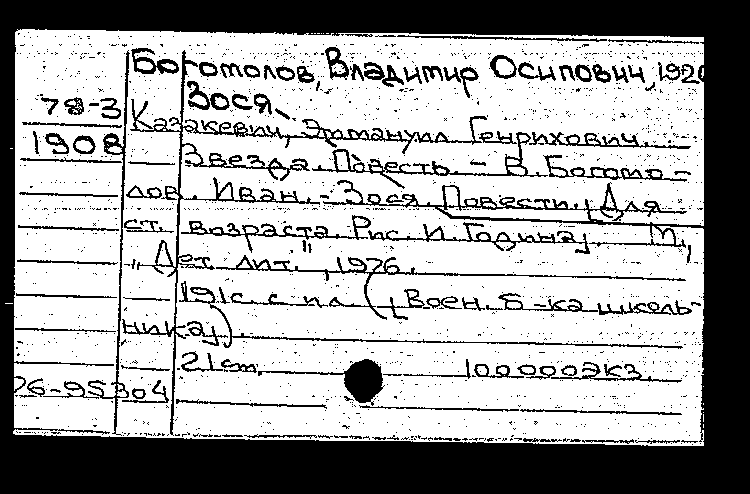 Богомолов, Владимир Осипович, 192
78-3 Зося.
1908 Казакевич, Эммануил Генрихович.
Звезда. Повесть. - В. Богомо-
лов. Иван. - Зося. Повести. [Для
ст. возраста. Рис. И. Година]. М.,
"Дет. лит.", 1976.
191 с. с ил. ([Воен. б-ка школь-
ника]).
21 см. 100000 экз.
76-95304